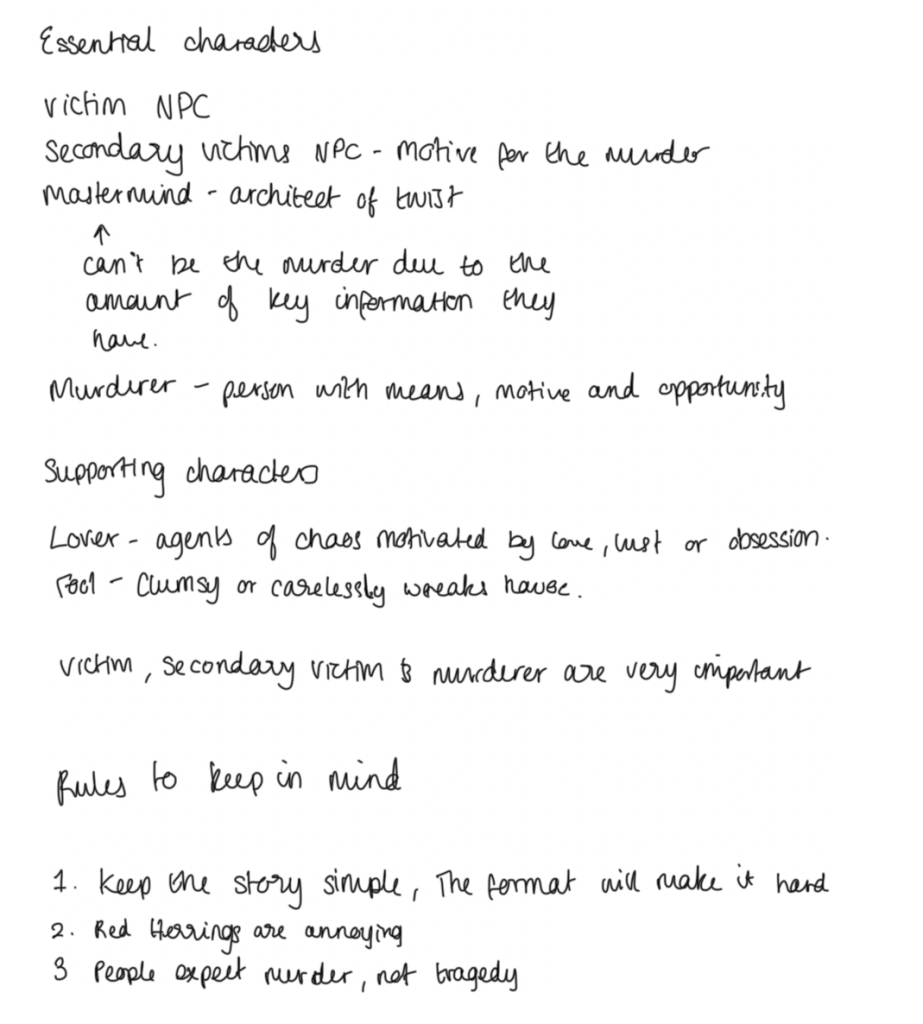 Essential characters
victim NPC
Secondary victims NPC - motive for the murder
Mastermind - architect of twist
↑
can't be the murder due to the
amount of key information they
have.
Murderer - person with means, motive and opportunity
Supporting characters
Lover - agents of chaos motivated by love, lust or obsession.
Fool - Clumsy or carelessly wreaks havoc.
victim, secondary victim & murderer are very important
Rules to keep in mind
1. Keep the story simple, The format will make it hard
2. Red Herrings are annoying
3 People expect murder, not tragedy